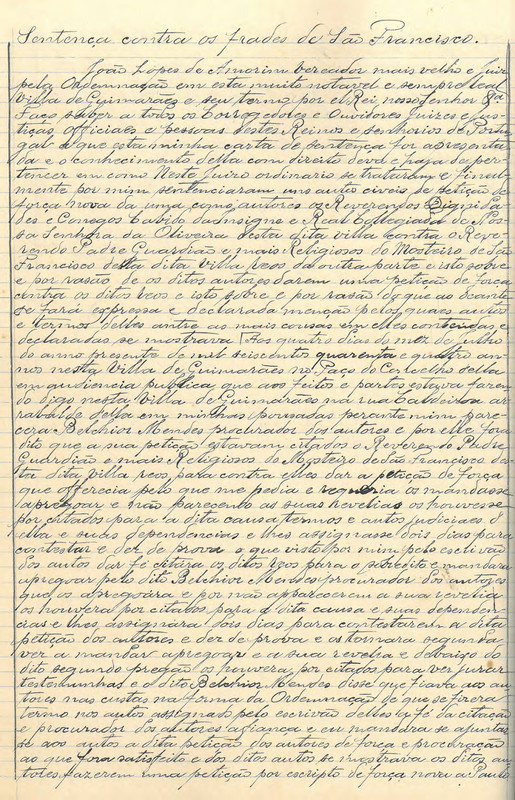 Sentença contra os frades de São Francisco.
João Lopes de Amorim vereador mais velho e Juiz
pela Ordemnação em esta muito notavel e sempre leal
Villa de Guimarães e seu termo por el Rei nosso Senhor
Faço saber a todos os Corregedores e Ouvidores Juizes e Jus-
tiças, officiaes e pessoas destes Reinos e senhorios de Portu-
gal a que esta minha carta de sentença for apresenta-
da e o conhecimento della com direito deva e haja de per-
tencer em como Neste Juizo ordinario se trataram e fineal-
mente por mim sentenciaram uns autos civeis de petição de
força nova da uma como autores os Reverendos Dignida-
des e Conegos Cabido da Insigne e Real Collegiada de Nos-
sa Senhora da Oliveira desta dita villa contra o Reve-
rendo Padre Guardião e mais Religiosos do Mosteiro de São
Francisco desta dita villa reos da outra parte e isto sobre
e por rasão de os ditos autores darem uma petição de força
contra os ditos reos e isto sobre e por rasão do que ao deante
se fará expressa e declarada menção pelos quaes autos
e termos delles antre as mais cousas em elles contendas e
declaradas se mostrava Aos quatro dias do mez de julho
do anno presente de mil seiscentos quarenta e quatro an-
nos nesta villa de Guimarães no Paço do Concelho della
em audiencia publica que aos feitos e partes estava fazen-
do digo nesta villa de Guimarães na rua Caldeiroa ar-
rabalde della em minhas pousadas perante mim pare-
cera Belchior Mendes procurador dos autores e por elle fora
dito que a sua petição estavam citados o Reverendo Padre
Guardião e mais Religiosos do Mosteiro de São Francisco des-
ta dita villa reos para contra elles dar a petição de força
que offerecia pelo que me pedia e requeria os mandasse
apregoar e não parecendo as suas revelias os houvesse
por citados para a dita causa termos e autos judiciaes d'
ella e suas dependencias e lhes assignasse dois dias para
contestar e der de prova o que visto por mim pelo escrivão
dos autos dar fé citára os ditos reos para o sobredito e mandara
apregoar pelo dito Belchior Mendes procurador dos autores
que os apregoára e por não apparecerem a sua revelia
os houvera por citados para a dita causa e suas dependen-
cias e lhes assignára dois dias para contestarem a dita
petição dos autores e der de prova e os tornara segunda
ver a mandar apregoar e a sua revelia e debaixo do
dito segundo pregão os houvera por citados para ver jurar
testemunhas e o dito Belchior Mendes disse que fiava aos au-
tores nas custas na forma da Ordemnação de que se fizera
termo nos autos assignado pelo escrivão delles a fé da citação
e procurador dos autores afiança e eu mandara se ajuntas-
se aos autos a dita petição dos autores de força e procuração
ao que fora satisfeito e dos ditos autos se mostrava os ditos au-
tores fazerem uma petição por escripto de força nova a Paulo